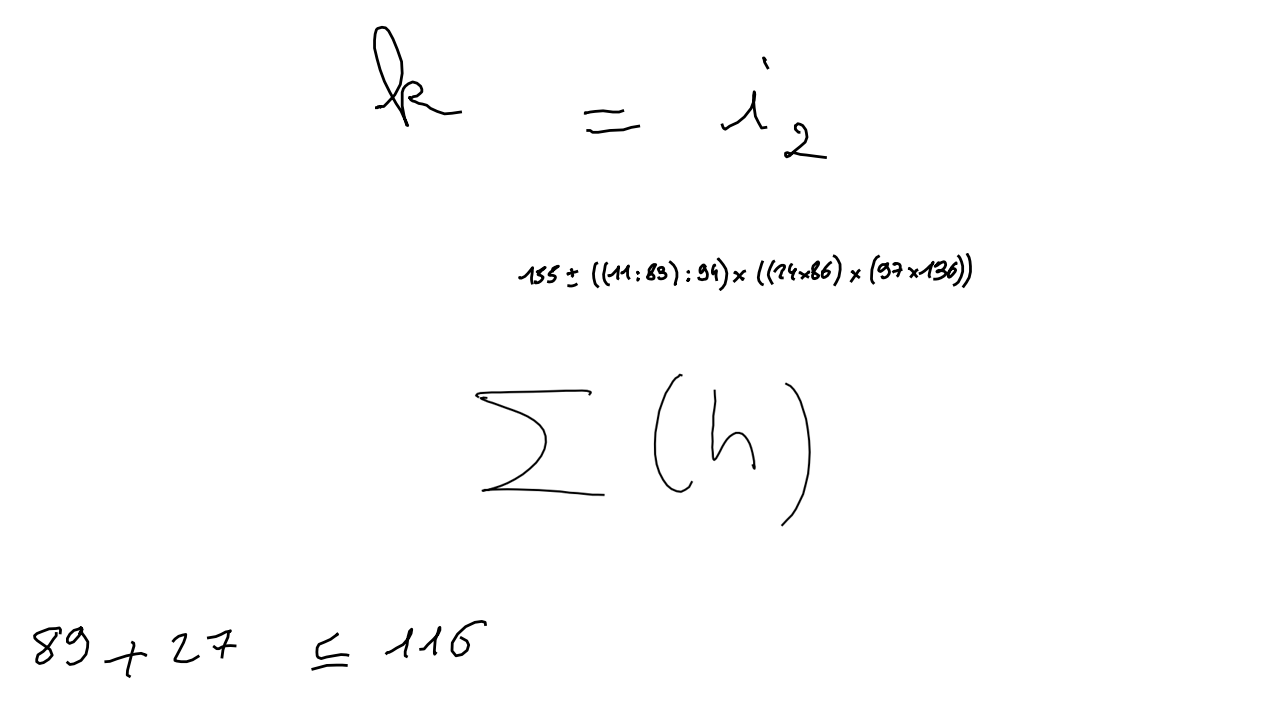 k = i₂
155 ± ((11:89):94)×((24×86)×(97×136))
∑(h)
89+27 ≤ 116